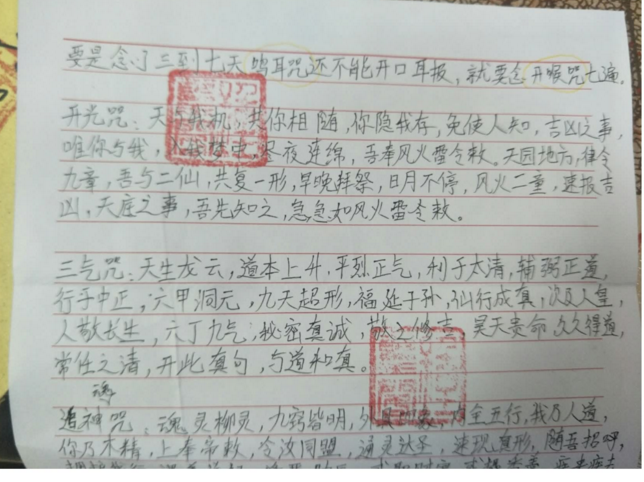 要是念了三到七天鸣耳咒还不能开口耳报,就要念开喉咒七遍。
开光咒:天与我机,共你相随,你隐我存,免使人知,吉凶之事,
唯你与我,夜连绵,吾奉风火雷令敕。天园地方,律令
九章,吾与二仙,共复一形,早晚拜祭,日月不停,风火二童,速报吉
凶,天庭之事,吾先知之,急急如风火雷令敕。
三气咒:天生龙云,道本上升,平烈正气,利于太清,辅弼正道,
行于中正,六甲洞元,九天超形,福延子孙,仙行成真,次及人皇,
人敬长生,六丁九气,秘密真诚,敬之修吉,昊天贵命,久久得道,
常任之清,开此真句,与道和真。
魂
追神咒:魂灵柳灵,九窍皆明,五行,我乃人道,
你乃木精,上奉帝敕,令汝同盟,通灵,速现真形,随吾招呼,